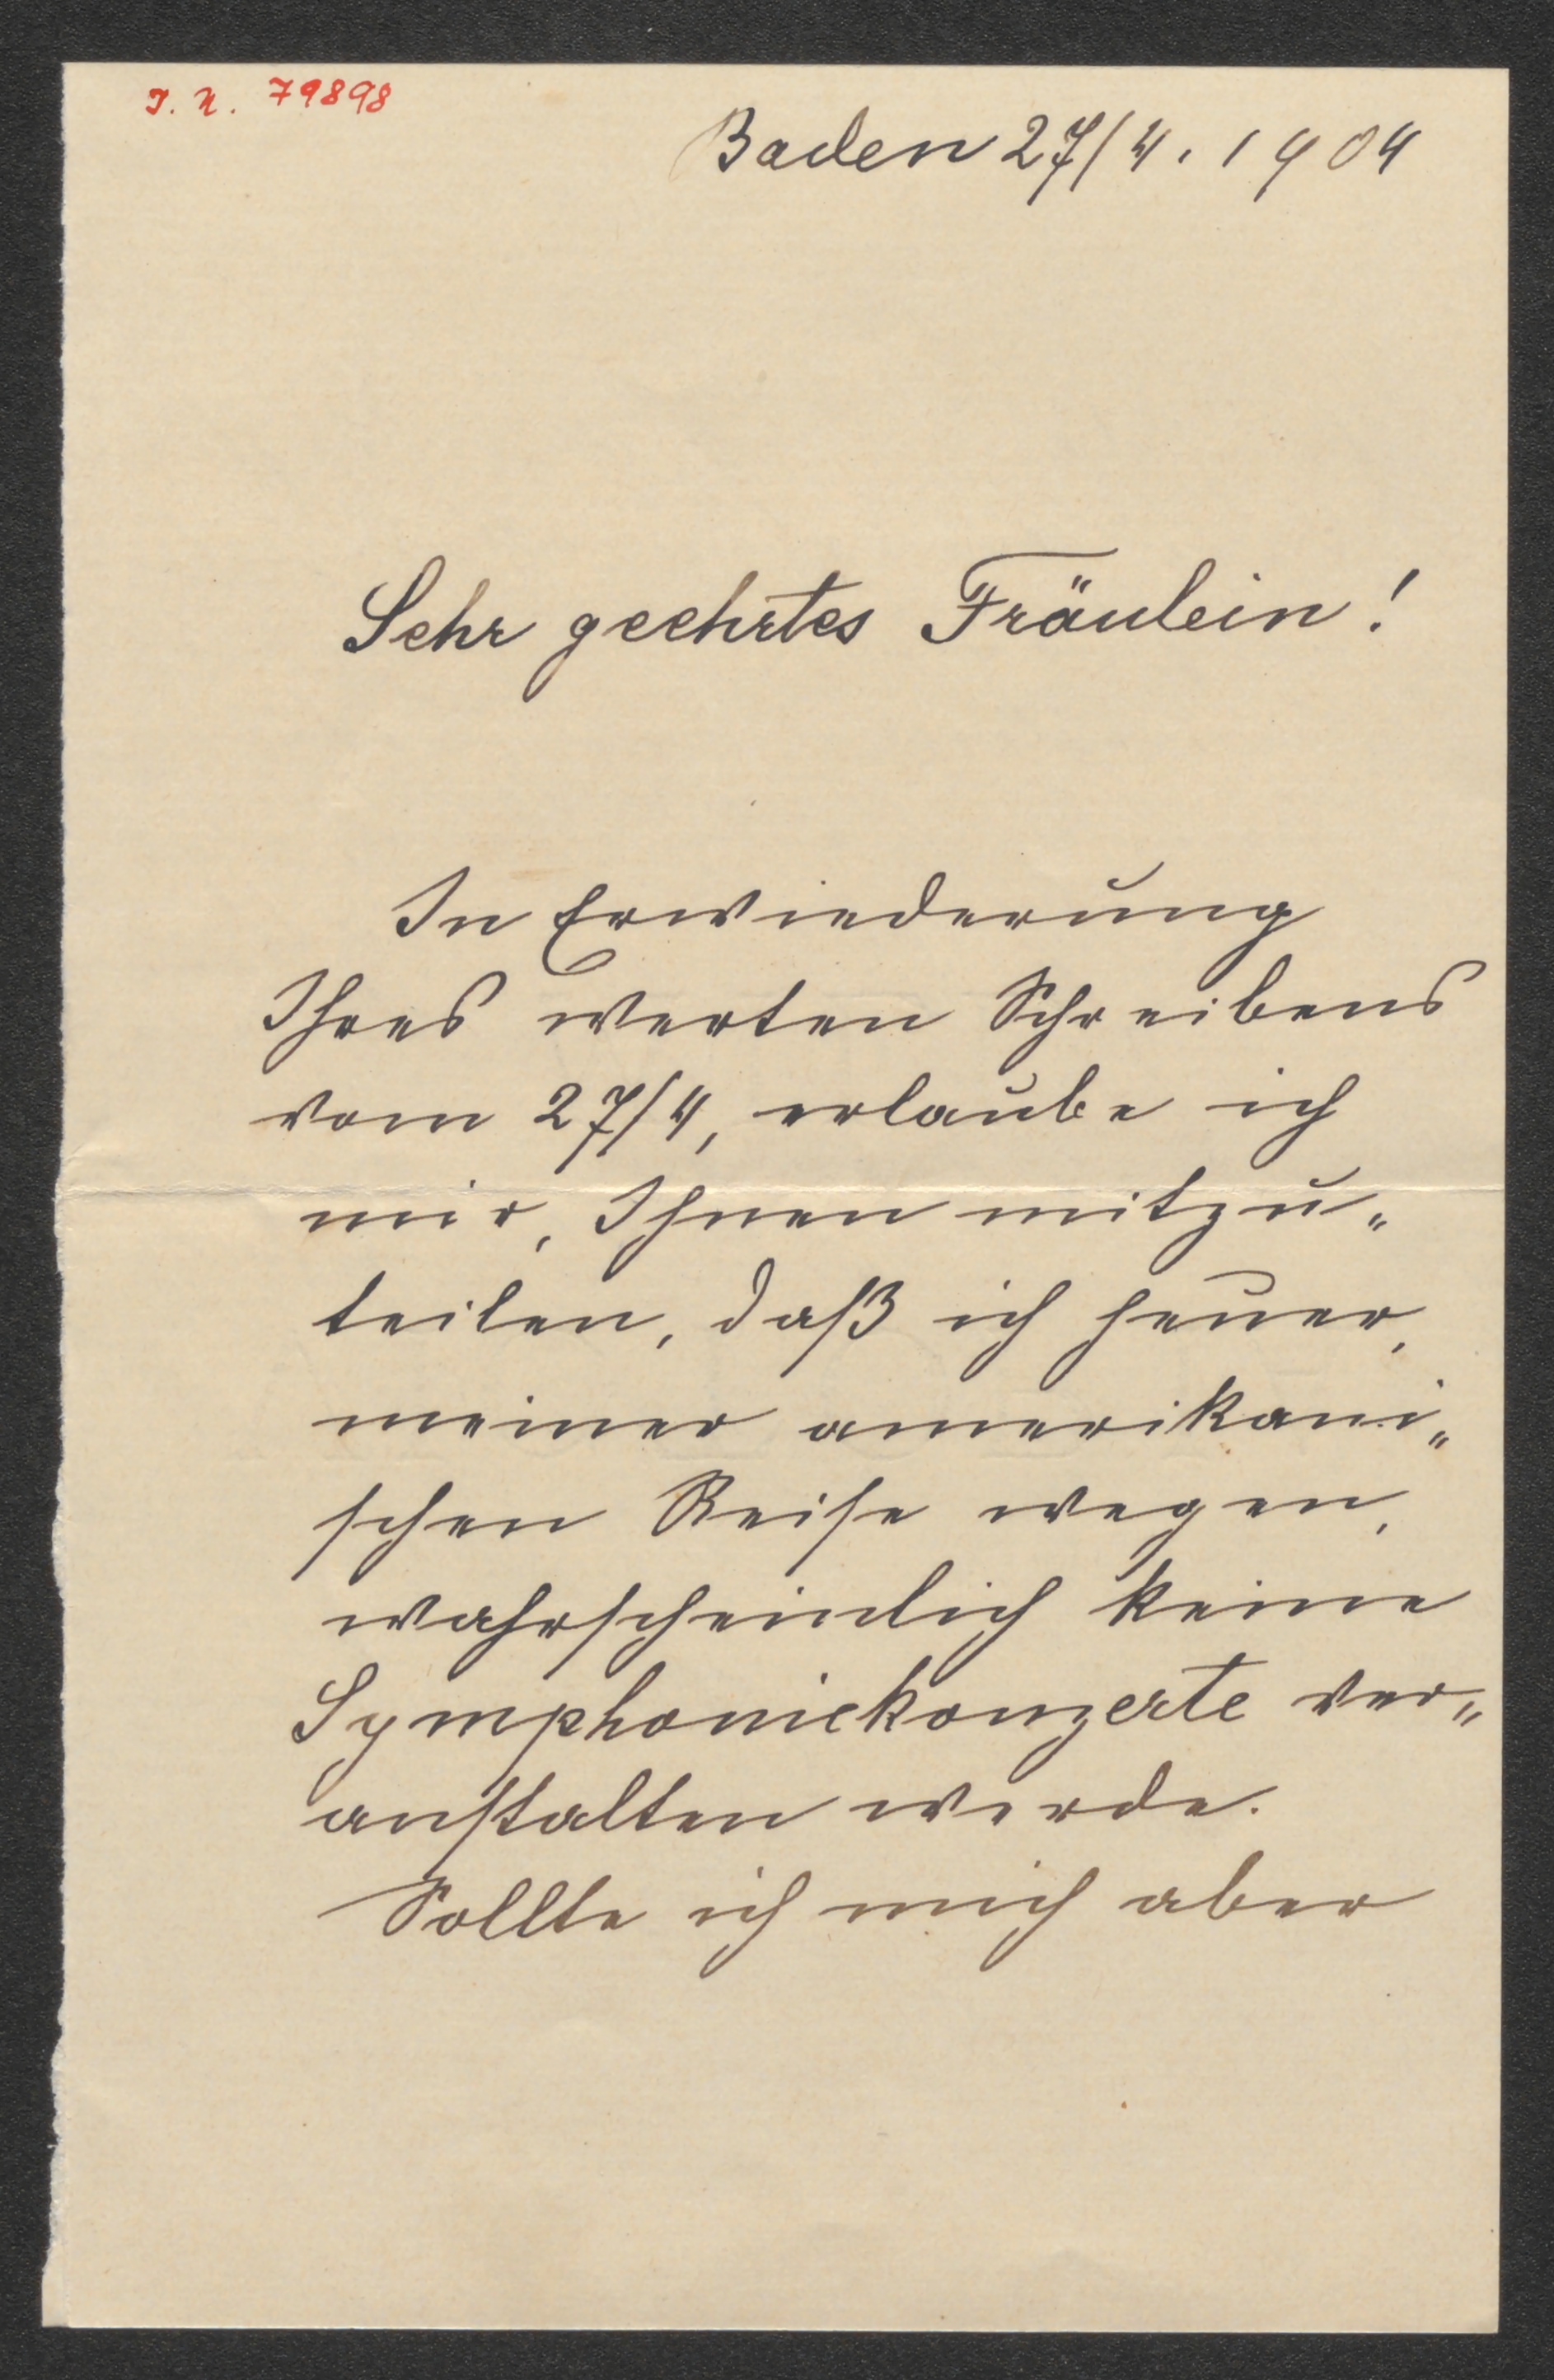 I. N. 79898
Baden 27/4. 1904
Sehr geehrtes Fräulein!
In Erwiederung
Ihres werten Schreibens
vom 27/4, erlaube ich
mir, Ihnen mitzu„
teilen, daß ich heuer,
meiner amerikani„
schen Reise wegen,
wahrscheinlich keine
Symphoniekonzerte ver„
anstalten werde.
Sollte ich mich aber